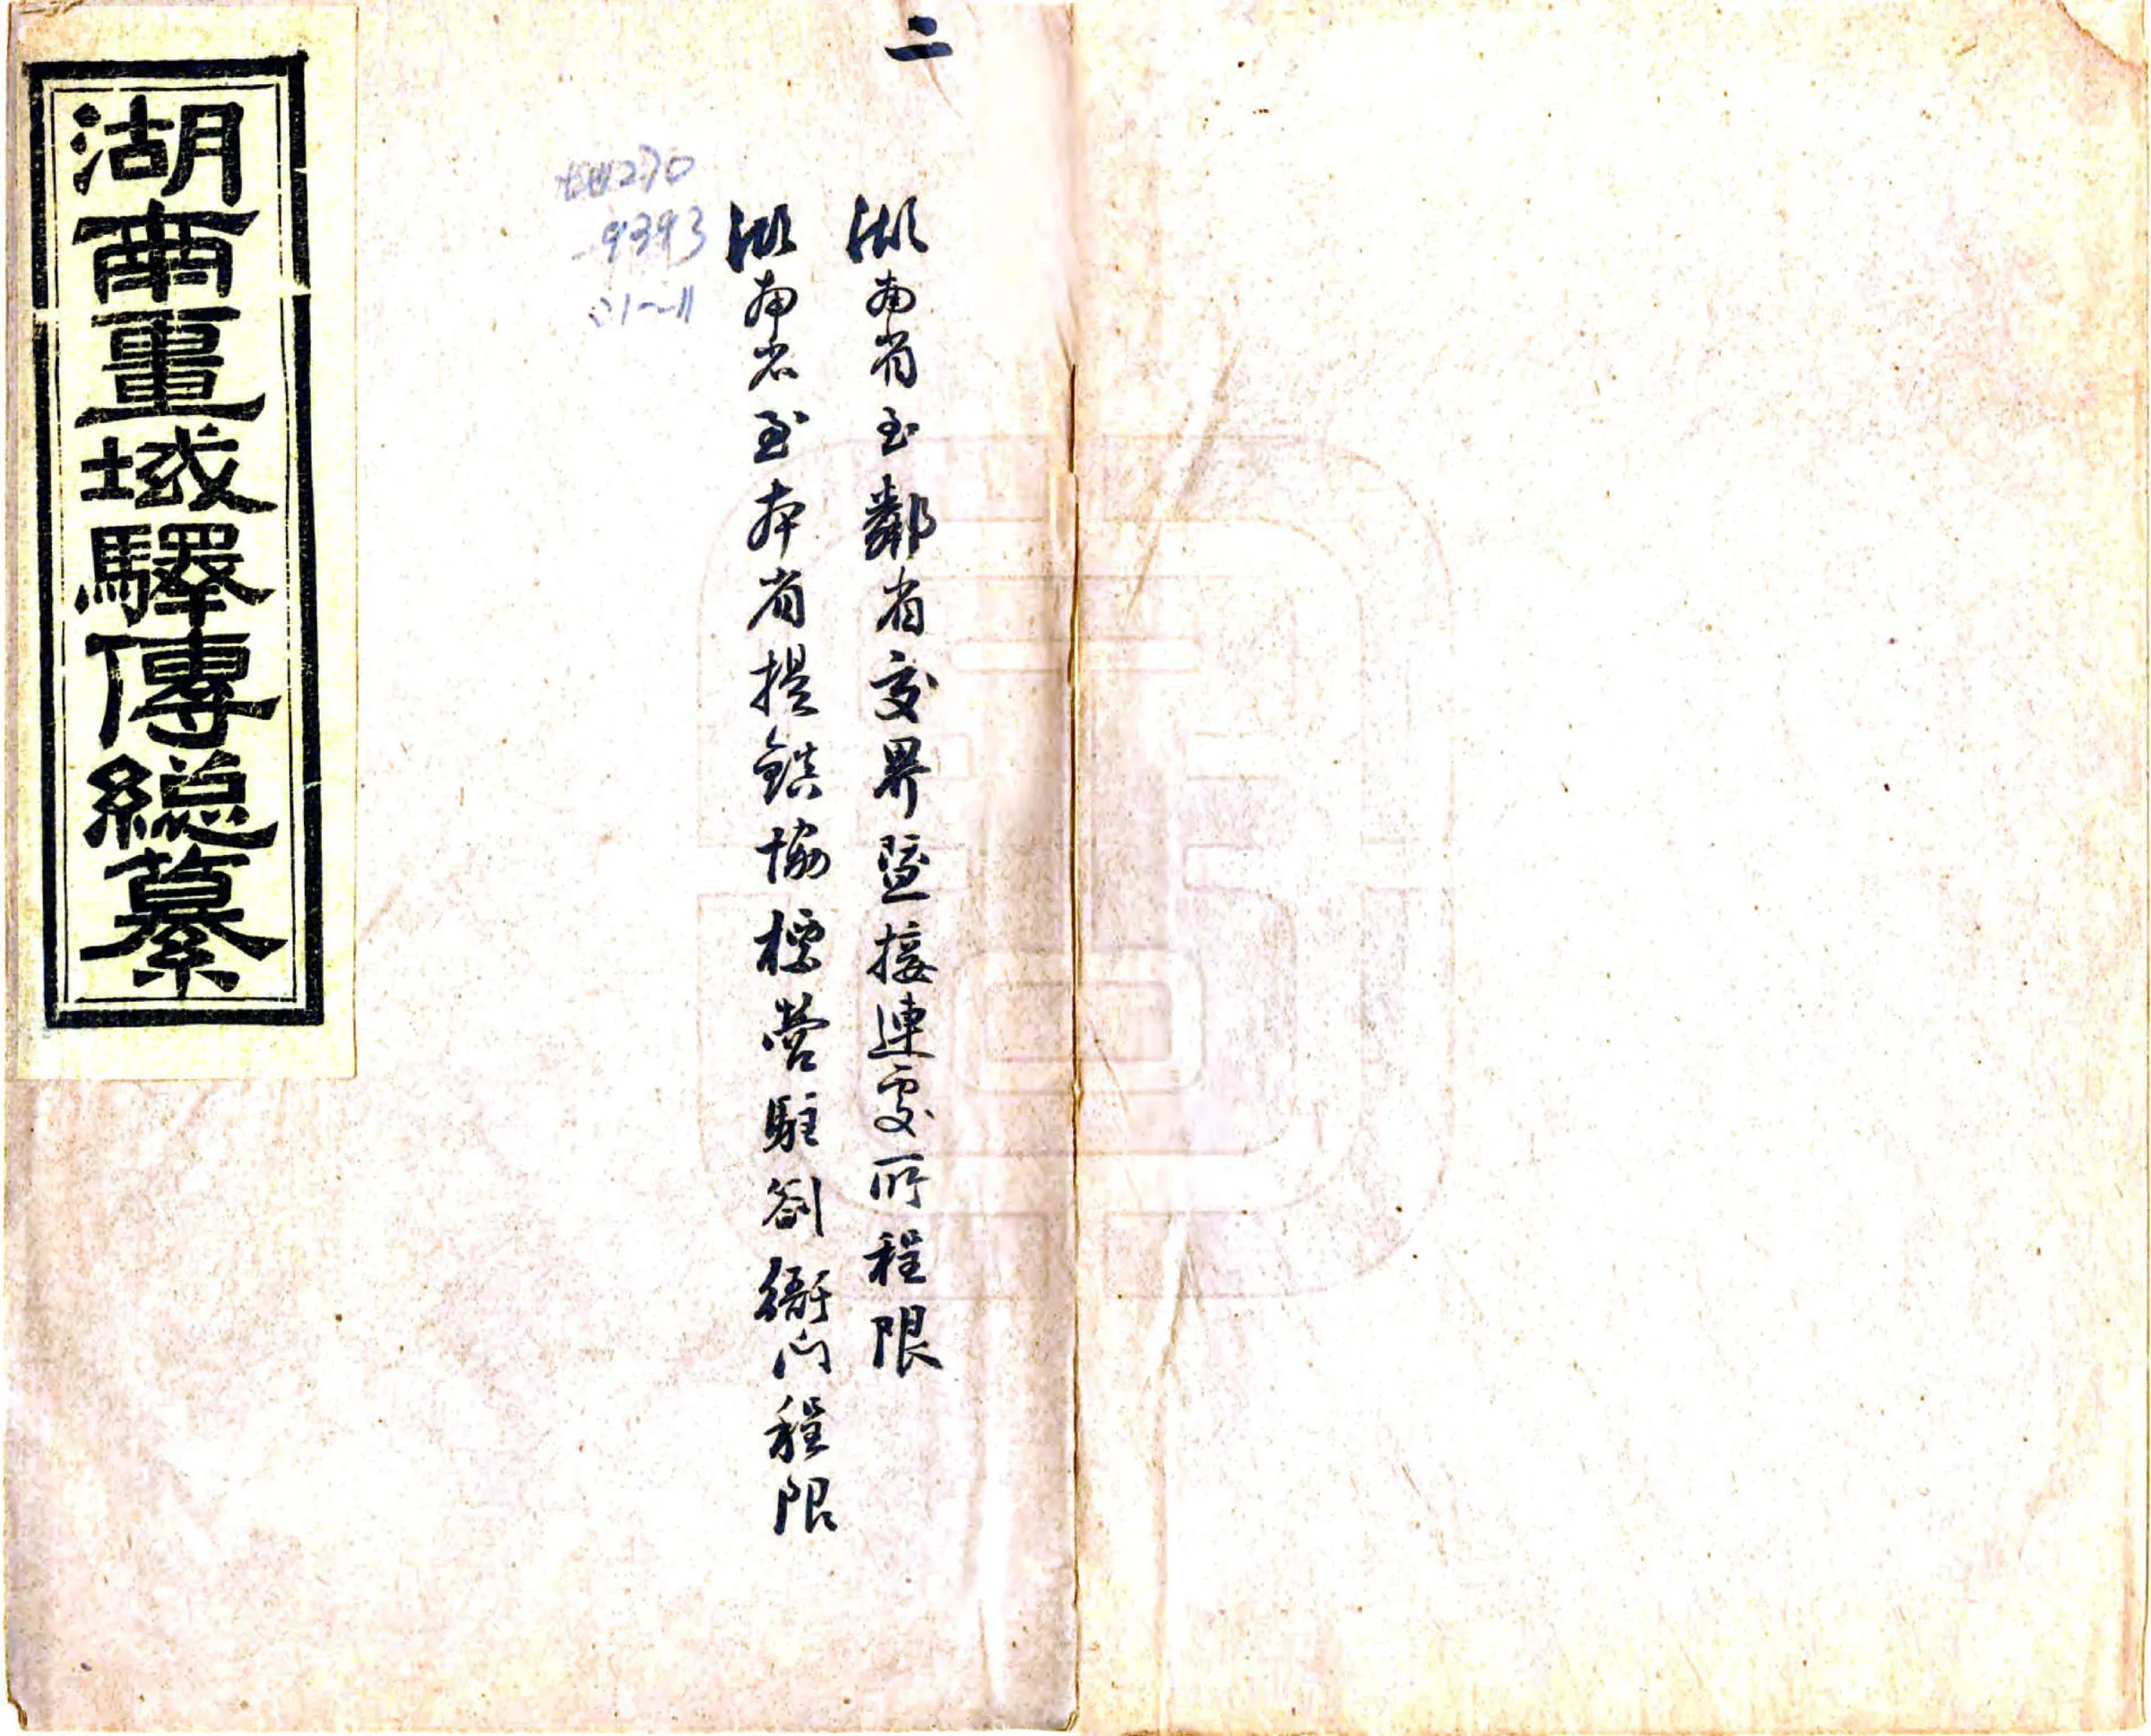 二
湖南省至鄰省交界暨接連處所程限
湖南省至本省提鎮協標營駐劄衙門程限
地270
9393
:1~11
湖南畺域驛傳總纂